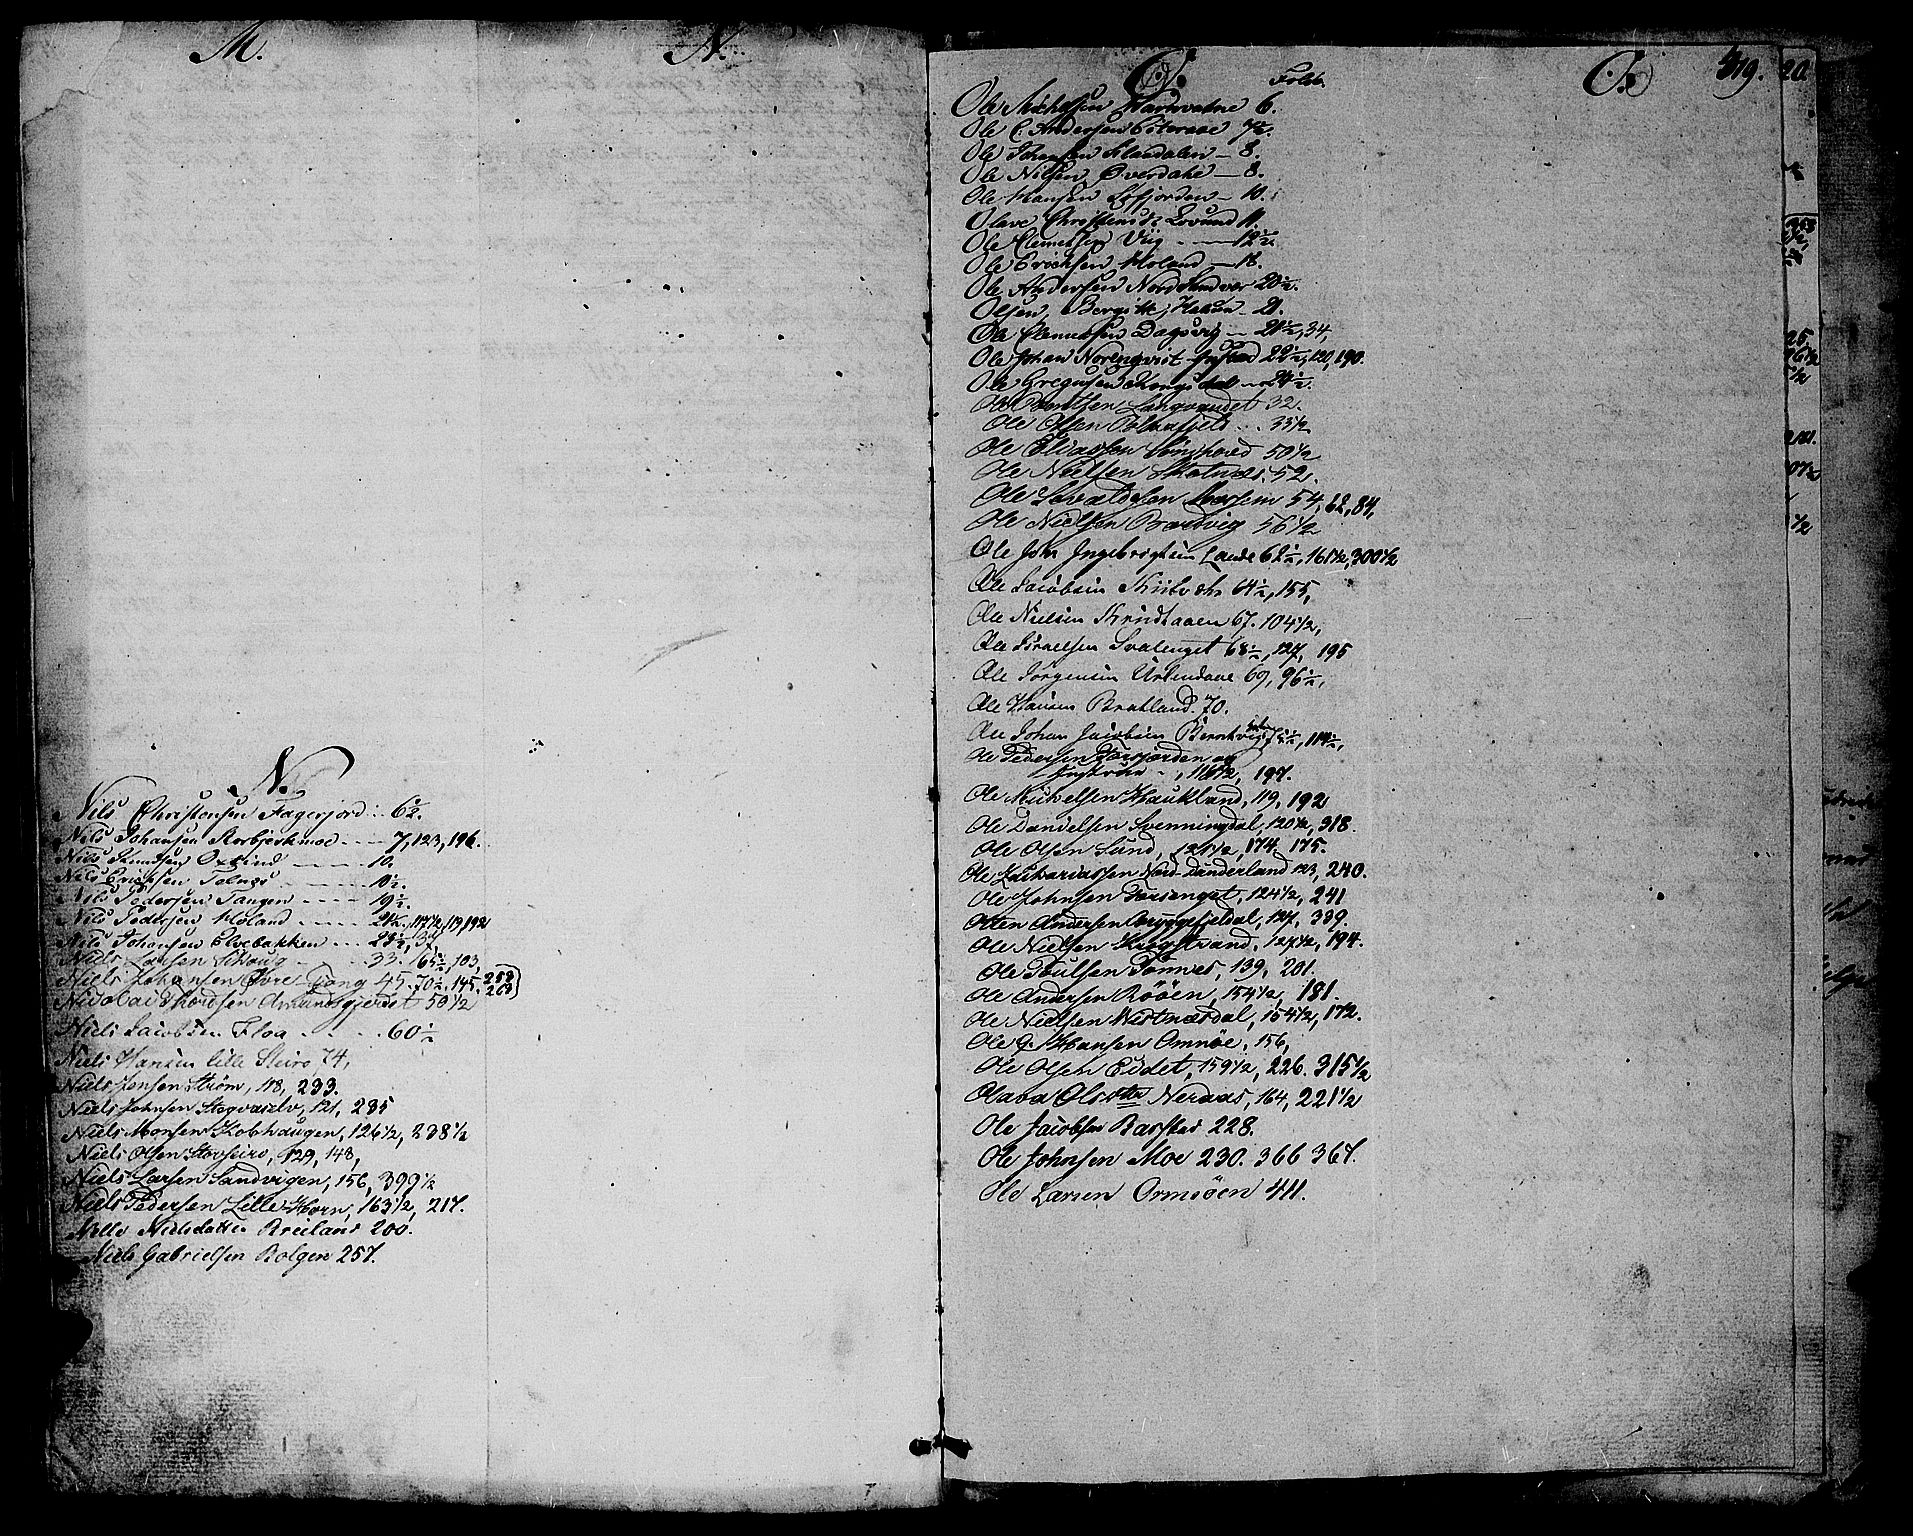 M.
N.
N.
Nils Christensen Fagerjord 6½.
Nils Johansen Korbjerkmoe 7, 123, 196.
Nils Knudsen Oxtind 10.
Nils Erichsen Tolnæs 10½.
Nils Pedersen Tangen 19½.
Nils Pedersen Holand 21½, 117½, 119, 192
Nils Johansen Elvebakken 23½, 37,
Niels Larsen Skoug 33. 65½, 103,
Niels Johansen Øvre Tang 45. 70½, 145. 252 263
Nicolai Thordsen Amundsgjerdet 50½
Niels Jacobsen Floa 60½
Niels Hansen lille Steiro, 74,
Niels Jensen Strøm, 118, 233.
Niels Johnsen Stegvaselv, 121, 235
Niels Monsen Kobhaugen, 126½, 238½
Niels Olsen Storseiro, 129, 148,
Niels Larsen Sandvigen, 156, 399½
Niels Pedersen Lille Horn, 163½, 217.
Nille Nielsdatter Breiland 200.
Niels Gabrielsen Bolgen 257.
O.
O.
419.
20
Folio.
Ole Michelsen Hardvatne 6.
Ole C. Andersen 7½.
Ole Johansen 8.
Ole Nilsen Øverdahl 8.
Ole Hansen Leffjorden 10.
Olave Christensd: Lovund 11.
Ole Clemetsen Viig 12½.
Ole Erichsen Holand 18.
Ole Andersen Nord Sundvær 20½.
Olsen, Bergitte, 21.
Ole Clemetsen Dagsvig 21½, 34,
Ole Johan Norenqvist 22½, 120, 190.
Ole Gregusen Kongsdal 24½.
Ole Bentsen Langvandet 32.
Ole Olsen Polnafjeld 33½
Ole Eliassen 50½
Ole Nielsen Skotnæs 52.
Ole Sivaldsen Mossem 54, 62, 84,
Ole Nielsen Brædvig 56½
Ole Joh Ingebrigtsen Lande 62½, 161½, 300½
Ole Jacobsen 64½, 155,
Ole Nielsen 67. 104½,
Ole Israelsen Svalenget 68½, 127, 195
Ole Jørgensen Urlandaae 69, 96½,
Ole Hansen Bratland. 70.
Ole Johan Jacobsen Berntvig 75½, 114½,
Ole Pedersen Forsjorden og
Engstrøm, 116½, 197.
Ole Michelsen Haukland, 119, 192
Ole Danielsen Svenningdal, 120½, 318.
Ole Olsen Sund, 121½, 174, 175.
Ole Zachariassen Nord Dunderland 123, 240.
Ole Johnsen Forsenget, 124½, 241
Otten Andersen Bryggefjeldal, 127, 339.
Ole Nielsen Krogstrand, 127½, 194.
Ole Poulsen Tømnes, 139, 201.
Ole Andersen Røøen, 154½, 181.
Ole Nielsen Vestnæsdal, 154½, 172.
Ole G. Hansen Omnøe, 156,
Ole Olsen Eidet, 159½, 226. 315½
Olava Olsdtter Neraas, 164, 221½
Ole Jacobsen Barstad 228.
Ole Johnsen Moe 230. 366 367.
Ole Larsen Ormsøen 411.